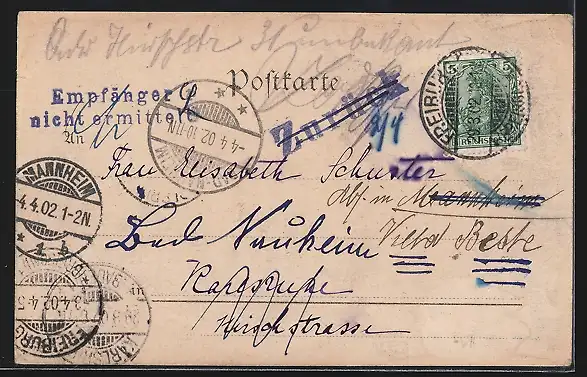 Adr Hirschstr 31 unbekannt
Postkarte
Empfänger
nicht ermittelt
Zurück
An
Frau Elisabeth Schuster
Abs. in Mannheim
Bad Nauheim Villa Beste
Karlsruhe
Hirschstrasse
MANNHEIM
4.4.02.1-2N.
* 1 b
-4 4 02.10-11V.
FREIBURG
3.4.02.4-5
FREIBURG
KARLSRUHE
5 5
REICHSPOST
2/4